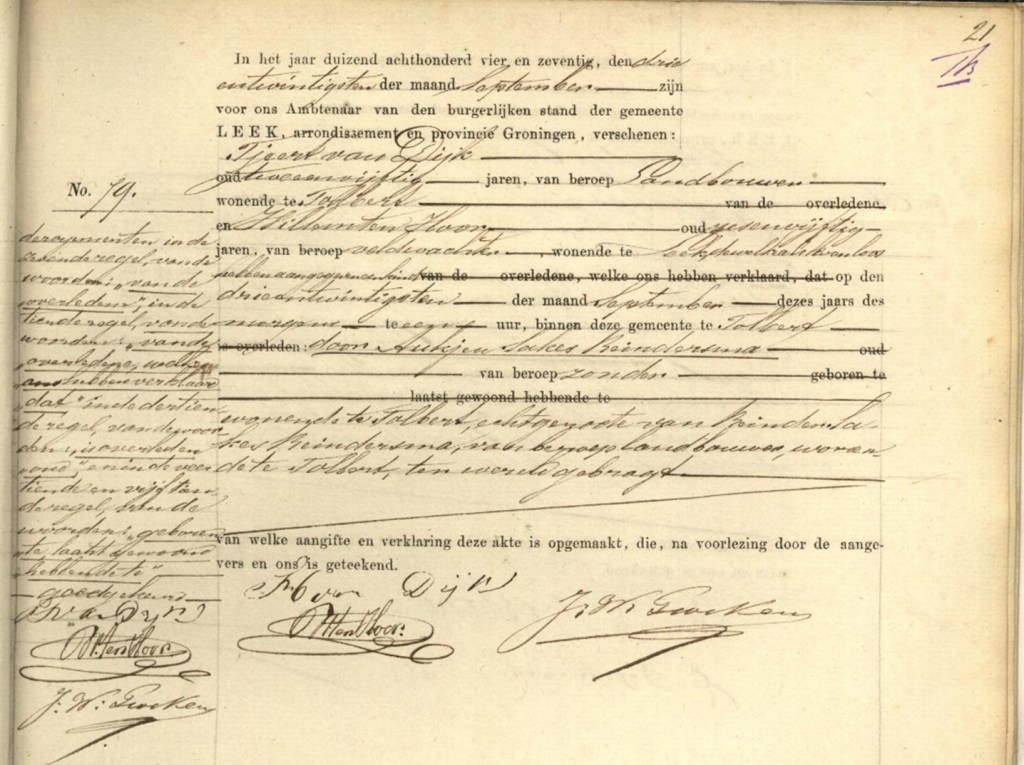 21
In het jaar duizend achthonderd vier en zeventig, den drie
entwintigsten der maand September zijn
voor ons Ambtenaar van den burgerlijken stand der gemeente
LEEK, arrondissement en provincie Groningen, verschenen:
Tjeert van Dijk
oud tweeenvijftig jaren, van beroep Landbouwer
wonende te Tolbert van de overledene
en Willem ten Hoor oud zesenvijftig
jaren, van beroep veldwachter, wonende te Leek, welke ons levenloos
hebben aangegeven van de overledene, welke ons hebben verklaard, dat op den
drieentwintigsten der maand September dezes jaars des
morgens te een uur, binnen deze gemeente te Tolbert
is overleden: door Aukjen Sakes Reindersma oud
van beroep zonder geboren te
laatst gewoond hebbende te
wonende te Tolbert, echtgenoote van Reinder Sa-
kes Reindersma, van beroep landbouwer, wonen-
de te Tolbert, ten wereld gebragt
van welke aangifte en verklaring deze akte is opgemaakt, die, na voorlezing door de aange-
vers en ons is geteekend.
T. van Dijk
W. ten Hoor.
No. 79.
in de
regel, van de
woorden: „van de
overledene", in de
tiende regel, van de
woorden: „van de
overledene, welke
ons hebben verklaard
dat" in de dertien-
de regel, van de woor-
den: „is overleden
oud" en in de veer-
tiende en vijftien-
de regel, van de
woorden: „geboren
te, laatst gewoond
hebbende te"
goedgekeurd
T. van Dijk
W. ten Hoor.